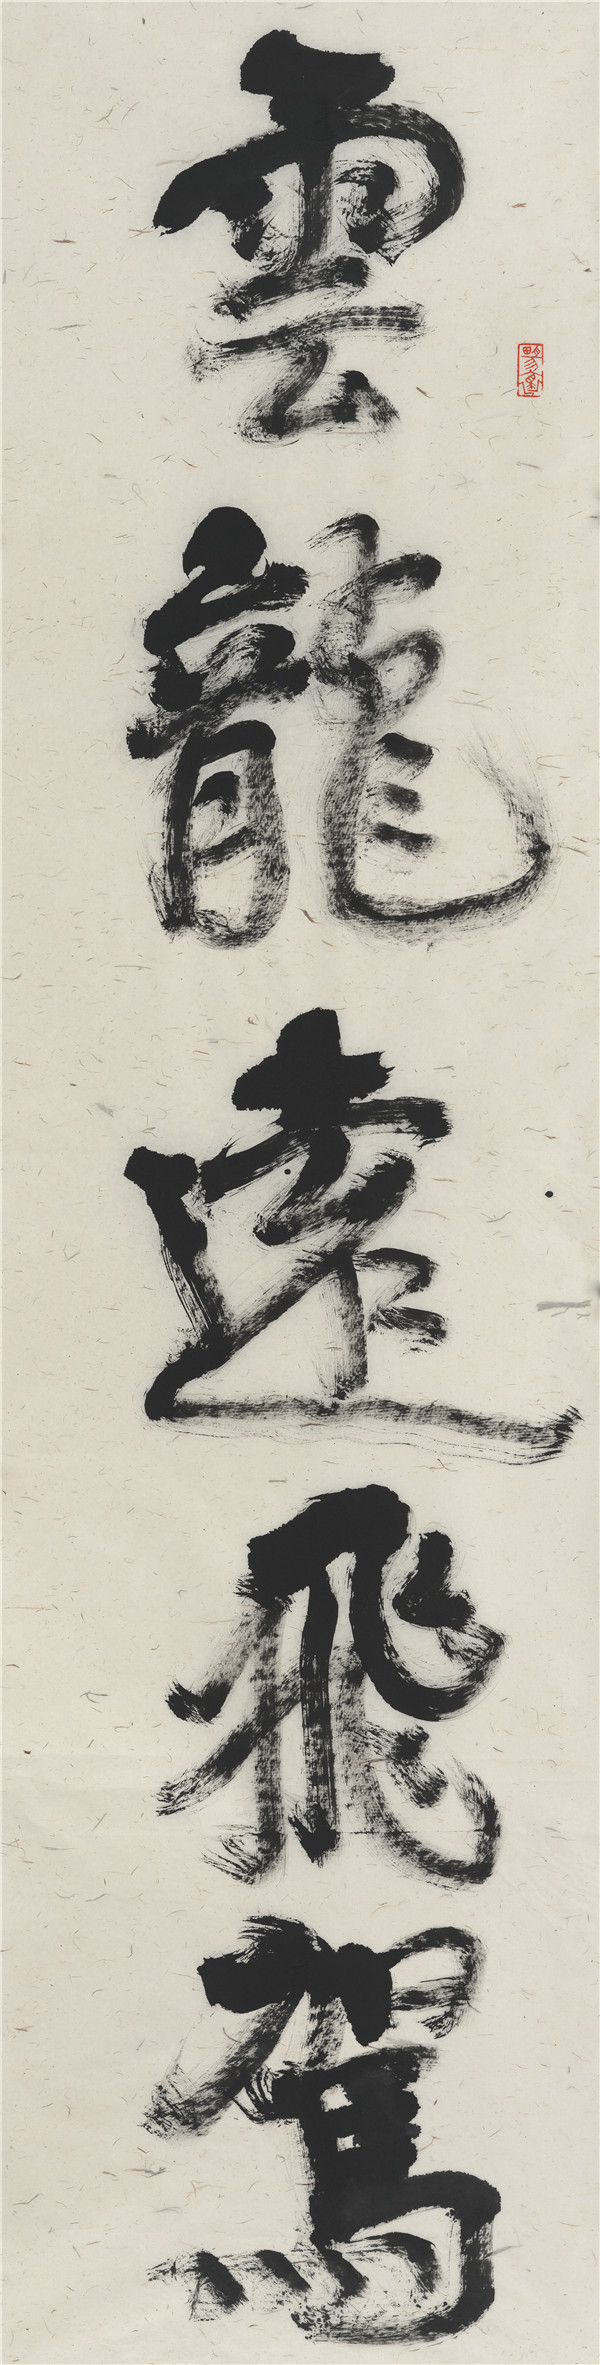 雲龍遠飛駕